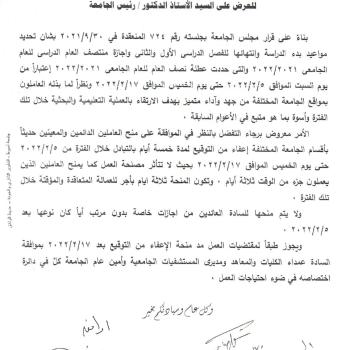 للعرض على السيد الأستاذ الدكتور / رئيس الجامعة
بناءً على قرار مجلس الجامعة بجلسته رقم ٧٢٤ المنعقدة في ٢٠٢١/٩/٣٠ بشان تحديد
مواعيد بدء الدراسة وانتهائها للفصل الدراسى الأول والثانى وإجازة منتصف العام الدراسى للعام
الجامعى ٢٠٢٢/٢٠٢١ والتى حددت عطلة نصف العام للعام الجامعى ٢٠٢٢/٢٠٢١ إعتباراً من
يوم السبت الموافق ٢٠٢٢/٢/٥ حتى يوم الخميس الموافق ٢٠٢٢/٢/١٧ ونظراً لما بذله العاملون
بمواقع الجامعة المختلفة من جهد وأداء متميز بهدف الارتقاء بالعملية التعليمية والبحثية خلال تلك
الفترة وأسوة بما هو متبع في الأعوام السابقة .
الأمر معروض برجاء التفضل بالنظر في الموافقة على منح العاملين الدائمين والمعينين حديثاً
بأقسام الجامعة المختلفة إعفاء من التوقيع لمدة خمسة أيام بالتبادل خلال الفترة من ٢٠٢٢/٢/٥
حتى يوم الخميس الموافق ٢٠٢٢/٢/١٧ بحيث لا تتأثر مصلحة العمل كما يمنح العاملين الذين
يعملون جزء من الوقت ثلاثة أيام . وتكون المنحة ثلاثة ايام بأجر للعمالة المتعاقدة والمؤقتة خلال تلك
الفترة .
ولا يتم منحها للسادة العائدين من اجازات خاصة بدون مرتب أياً كان نوعها بعد
٢٠٢٢/٢/٥ .
ويجوز طبقاً لمقتضيات العمل مد منحة الإعفاء من التوقيع بعد ٢٠٢٢/٢/١٧ بموافقة
السادة عمداء الكليات والمعاهد ومديرى المستشفيات الجامعية وأمين عام الجامعة كلٌ في دائرة
اختصاصه في ضوء احتياجات العمل .
وكل عام وسيادتكم بخير